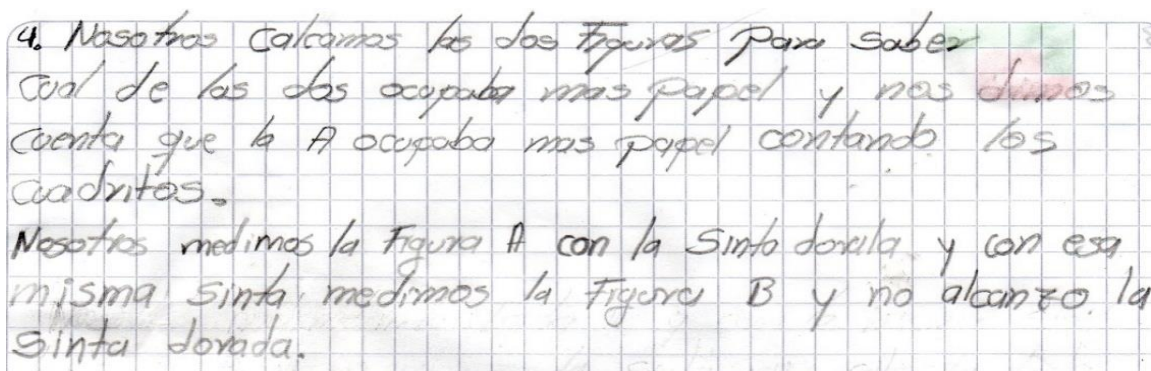 4. Nosotros calcamos las dos Figuras Para saber
cual de las dos ocupaba mas papel y nos dimos
cuenta que la A ocupaba mas papel contando los
cuadritos.
Nosotros medimos la Figura A con la Sinta dorada y con esa
misma Sinta medimos la Figura B y no alcanzo la
Sinta dorada.